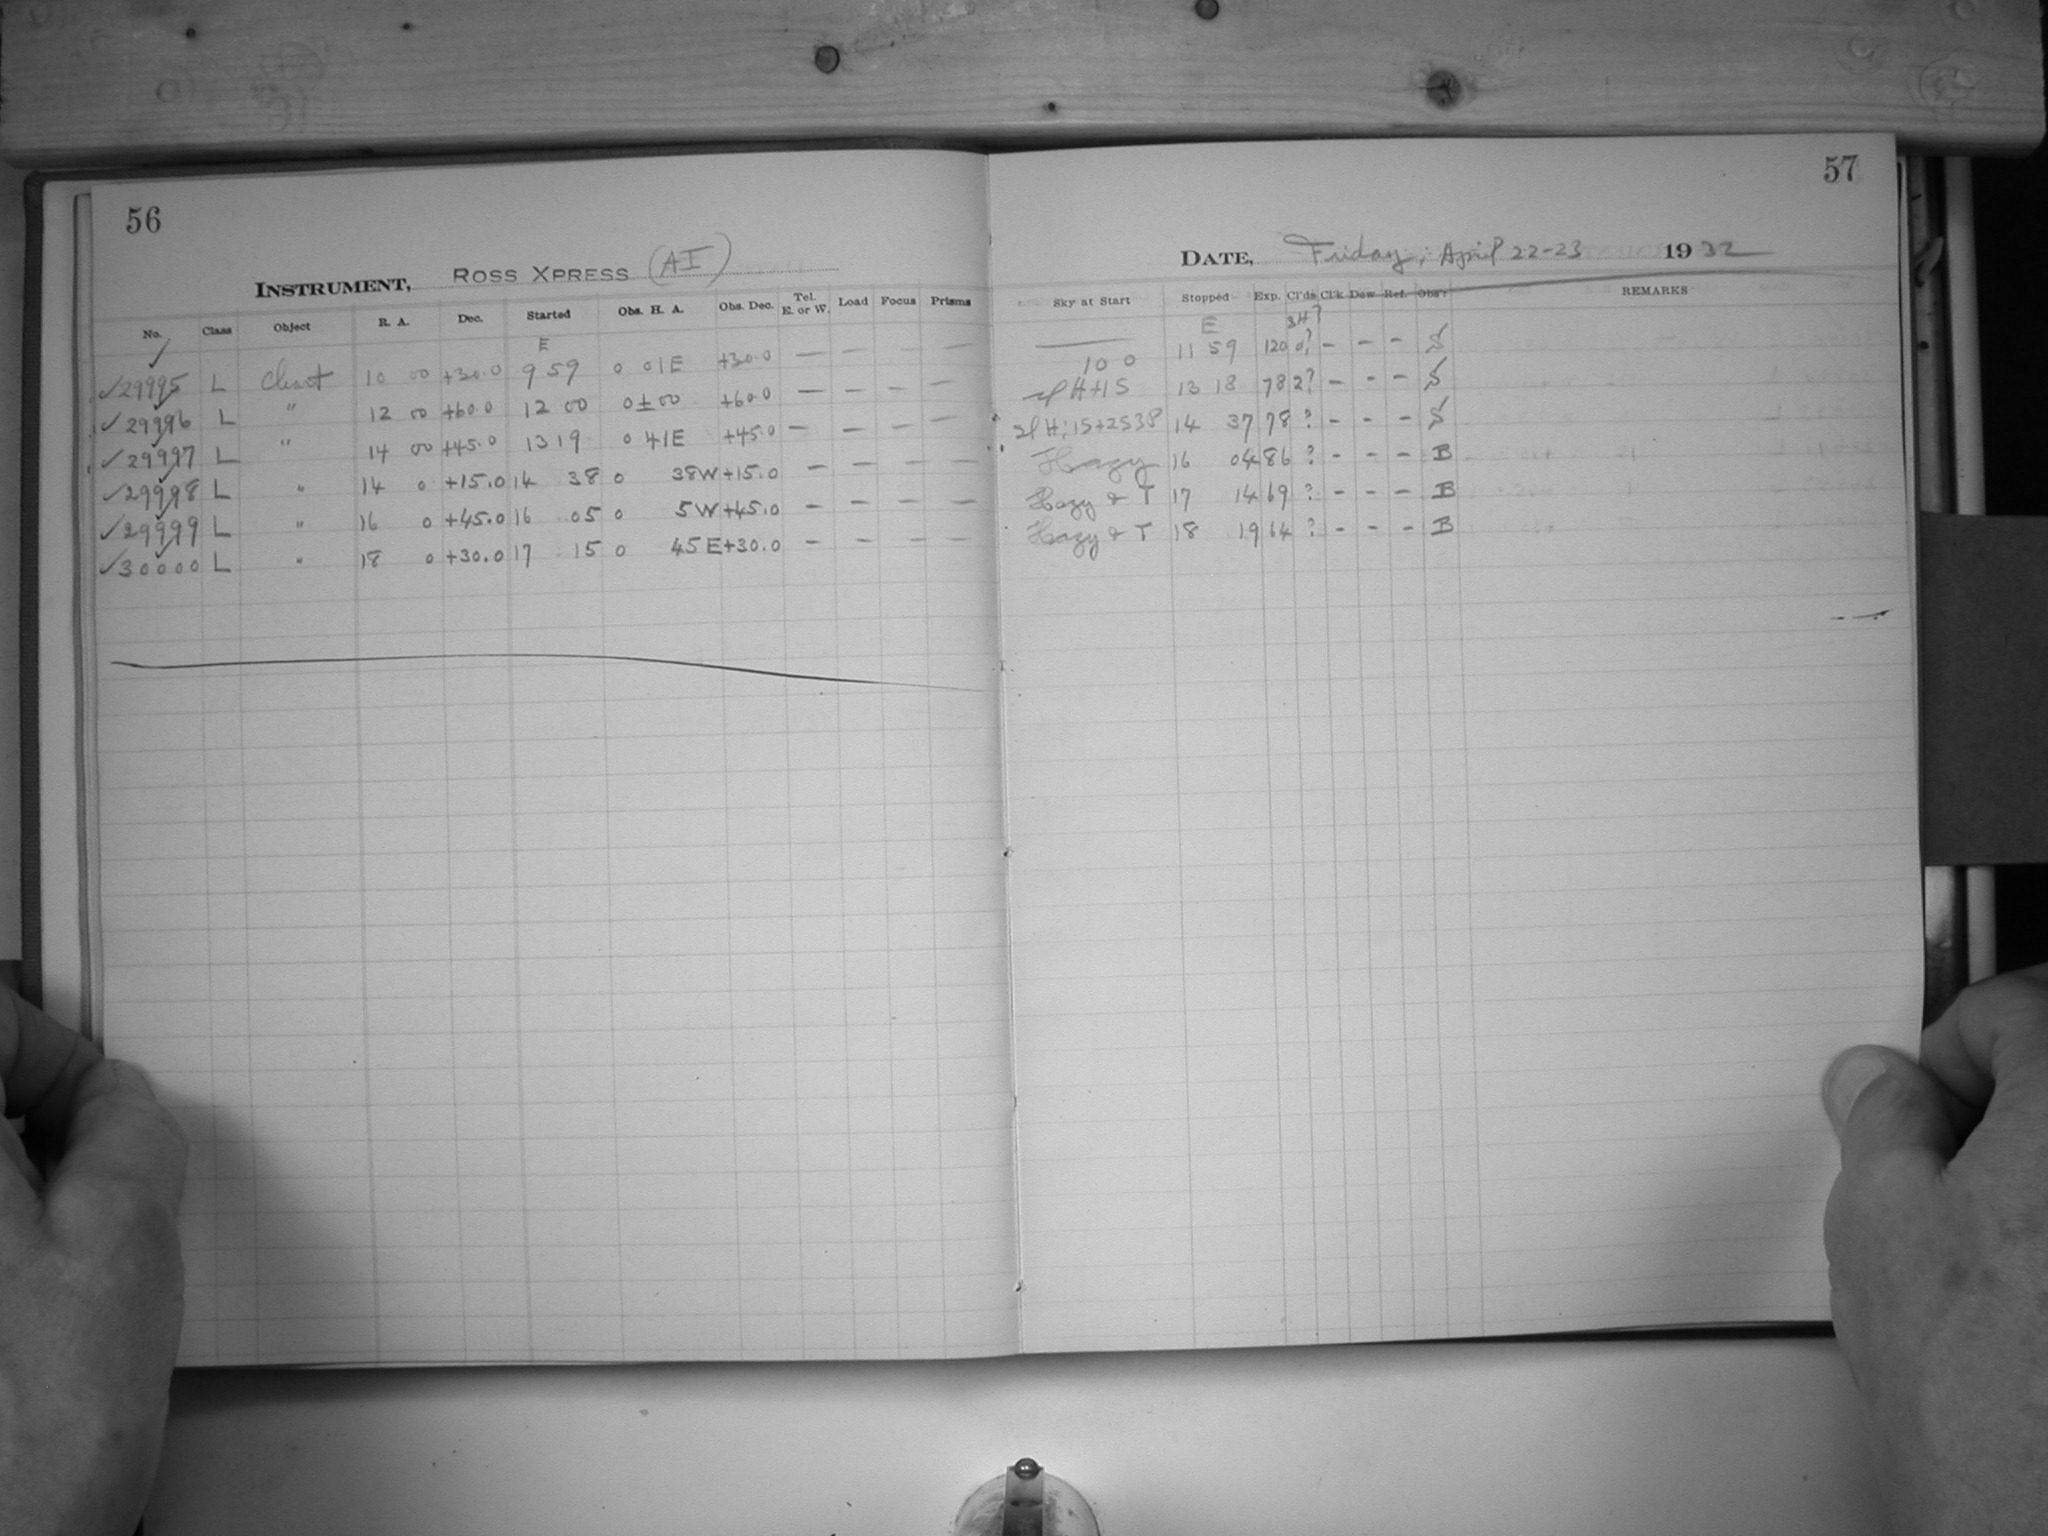 56
INSTRUMENT, ROSS XPRESS (AI)
No. Class Object R. A. Dec. Started Obs. H. A. Obs. Dec. Tel. E. or W. Load Focus Prisms
E
✓29995 L Chart 10 00 +30.0 9 59 0 01E +30.0 — — — —
✓29996 L " 12 00 +60.0 12 00 0±00 +60.0 — — — —
✓29997 L " 14 00 +45.0 13 19 0 41E +45.0 — — — —
✓29998 L " 14 0 +15.0 14 38 0 38W +15.0 — — — —
✓29999 L " 16 0 +45.0 16 05 0 5W +45.0 — — — —
✓30000 L " 18 0 +30.0 17 15 0 45E +30.0 — — — —
57
DATE, Friday, April 22-23 1932
Sky at Start Stopped Exp. Cl'ds Cl'k Dew Ref. Obs'r REMARKS
E 3H?
10 0 11 59 120 0? - - - S
H+1S 13 18 78 2? - - - S
H; 1S+2S3P 14 37 78 ? - - - S
Hazy 16 04 86 ? - - - B
Hazy & T 17 14 69 ? - - - B
Hazy & T 18 19 64 ? - - - B